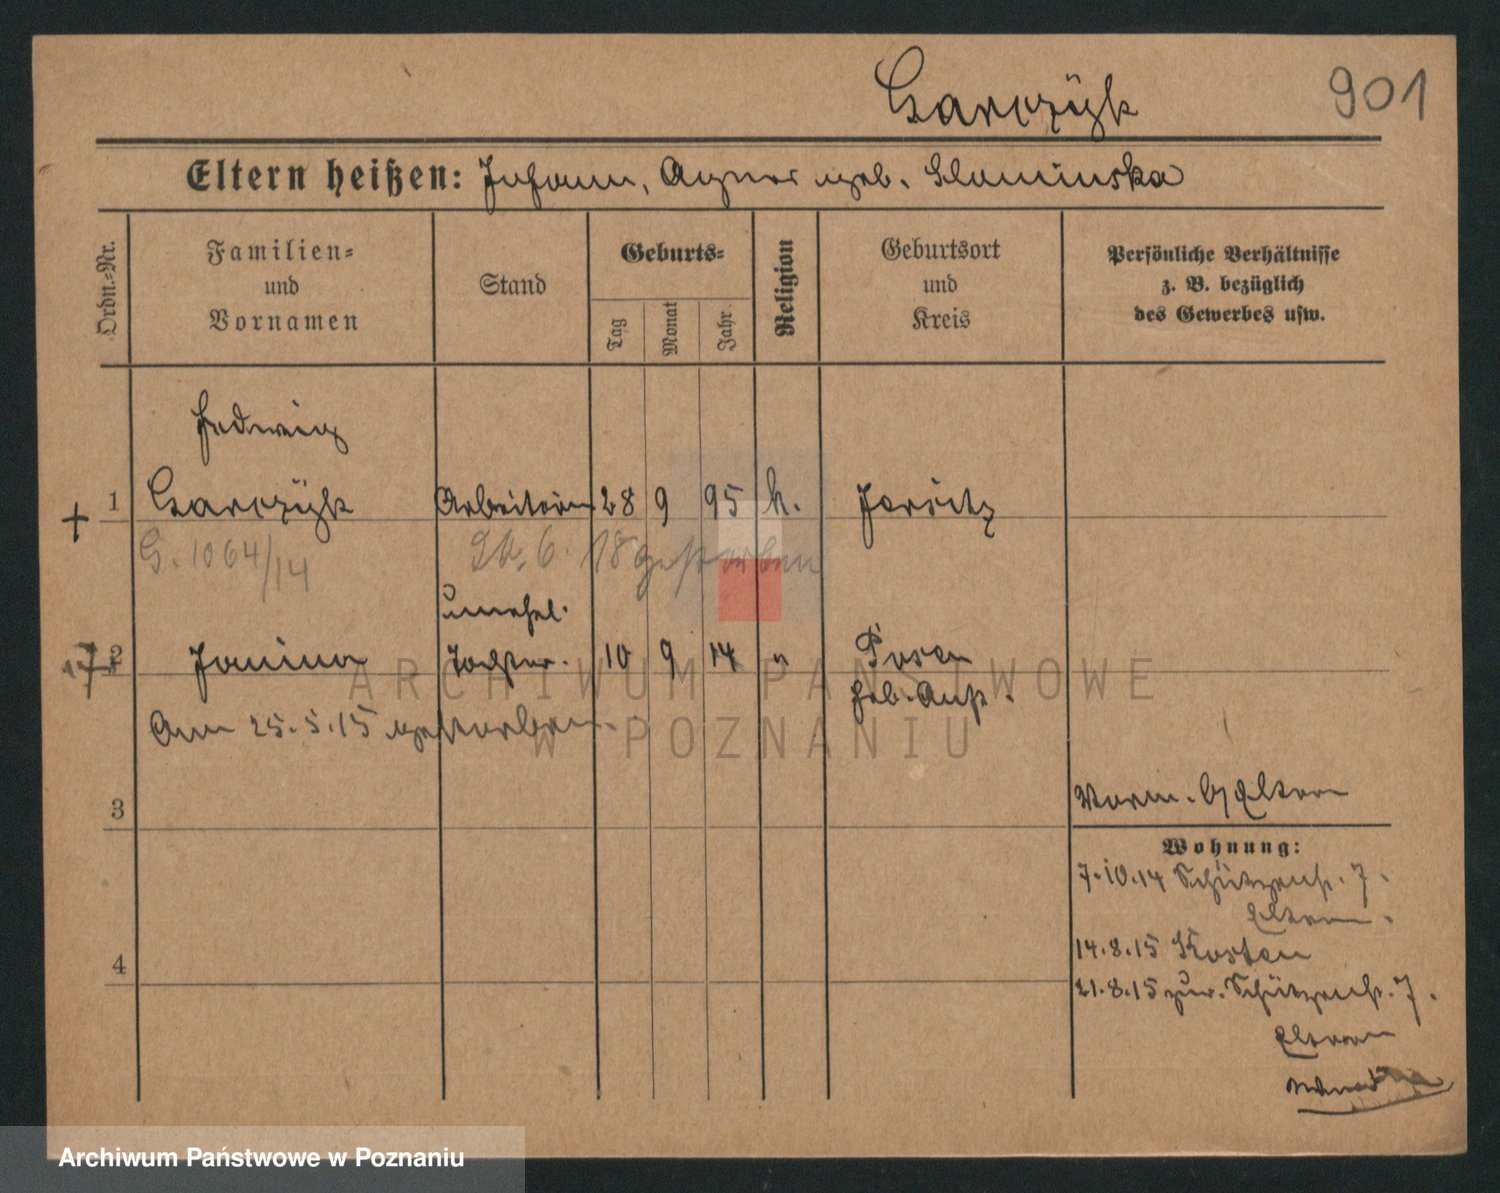 Garczÿk
901
Eltern heißen: Johann, Agnes geb. Slominska
Ordn.-Nr.
Familien-
und
Vornamen
Stand
Geburts-
Tag
Monat
Jahr
Religion
Geburtsort
und
Kreis
Persönliche Verhältnisse
z. B. bezüglich
des Gewerbes usw.
Hedwig
+ 1 Garczÿk Arbeiterin 28 9 95 k. Jersitz
G. 1064/14 6. 18 gestorben
unehel.
2 Janina Tochter. 10 9 14 " Posen
Heb. Anst.
Am 25.5.15 gestorben.
3
Vorm. b/ Eltern
Wohnung:
7.10.14 Schützenstr. 7.
Eltern.
4
14.8.15 Kosten
21.8.15 zur. Schützenstr. 7.
Eltern
ARCHIWUM PAŃSTWOWE
W POZNANIU
Archiwum Państwowe w Poznaniu